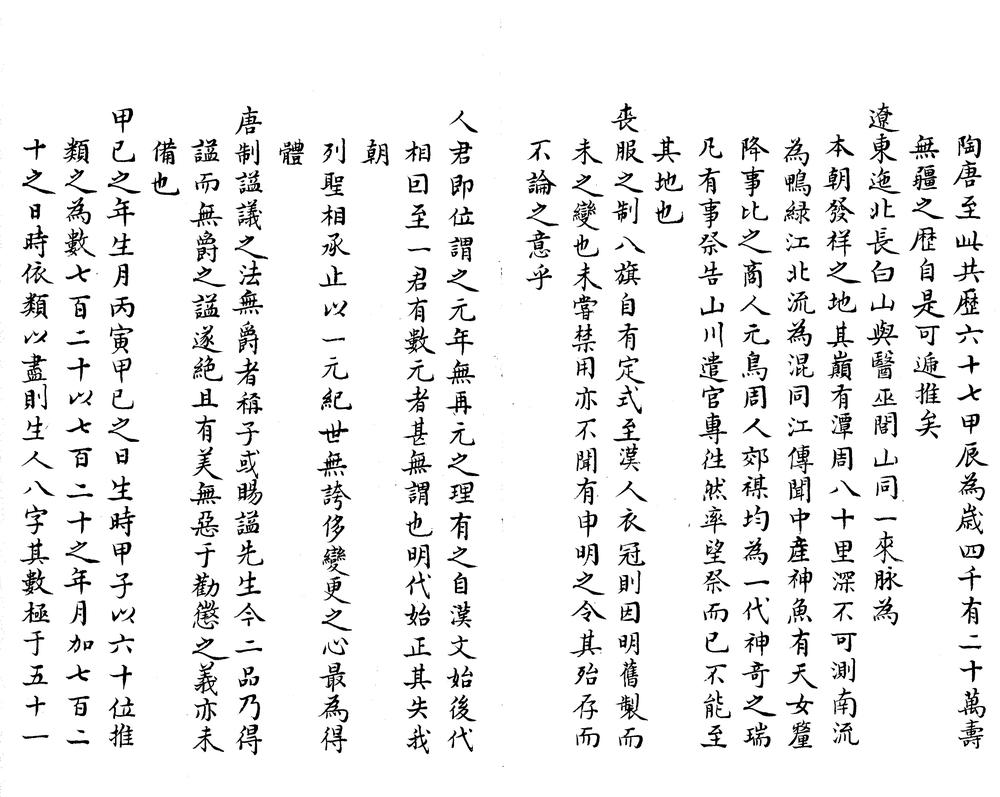 陶唐至此共歷六十七甲辰為歲四千有二十萬壽
無疆之歷自是可遞推矣
遼東迤北長白山與醫巫閭山同一來脉為
本朝發祥之地其巔有潭周八十里深不可測南流
為鴨緑江北流為混同江傳聞中產神魚有天女釐
降事比之商人元鳥周人郊禖均為一代神奇之瑞
凡有事祭告山川遣官專徃然率望祭而已不能至
其地也
喪服之制八旗自有定式至漢人衣冠則因明舊製而
未之變也未嘗禁用亦不聞有申明之令其殆存而
不論之意乎
人君即位謂之元年無再元之理有之自漢文始後代
相囙至一君有數元者甚無謂也明代始正其失我
朝
列聖相承止以一元紀世無誇侈變更之心最為得
體
唐制謚議之法無爵者稱子或賜謚先生今二品乃得
謚而無爵之謚遂絕且有美無惡于勸懲之義亦未
備也
甲已之年生月丙寅甲已之日生時甲子以六十位推
類之為數七百二十以七百二十之年月加七百二
十之日時依類以盡則生人八字其數極于五十一